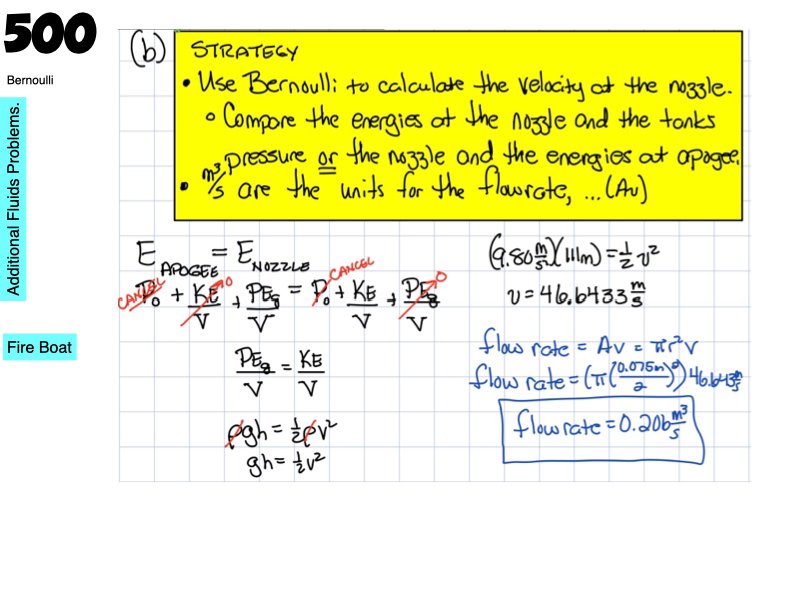 500
Bernoulli
Additional Fluids Problems.
Fire Boat
(b)
STRATEGY
• Use Bernoulli to calculate the velocity at the nozzle.
∘ Compare the energies at the nozzle and the tanks
pressure or the nozzle and the energies at apogee.
• m³/s are the units for the flowrate, ...(Av)
E APOGEE = E NOZZLE
CANCEL CANCEL
P₀ + KE/V → 0 + PEg/V = P₀ + KE/V + PEg/V → 0
PEg/V = KE/V
ρgh = ½ρv²
gh = ½v²
(9.80 m/s²)(111m) = ½ v²
v = 46.6433 m/s
flow rate = Av = πr²v
flow rate = (π(0.075m/2)²)46.643 m/s
flow rate = 0.206 m³/s